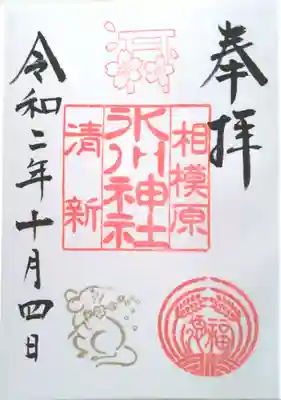 奉拝
相模原
氷川神社
清新
令和二年十月四日